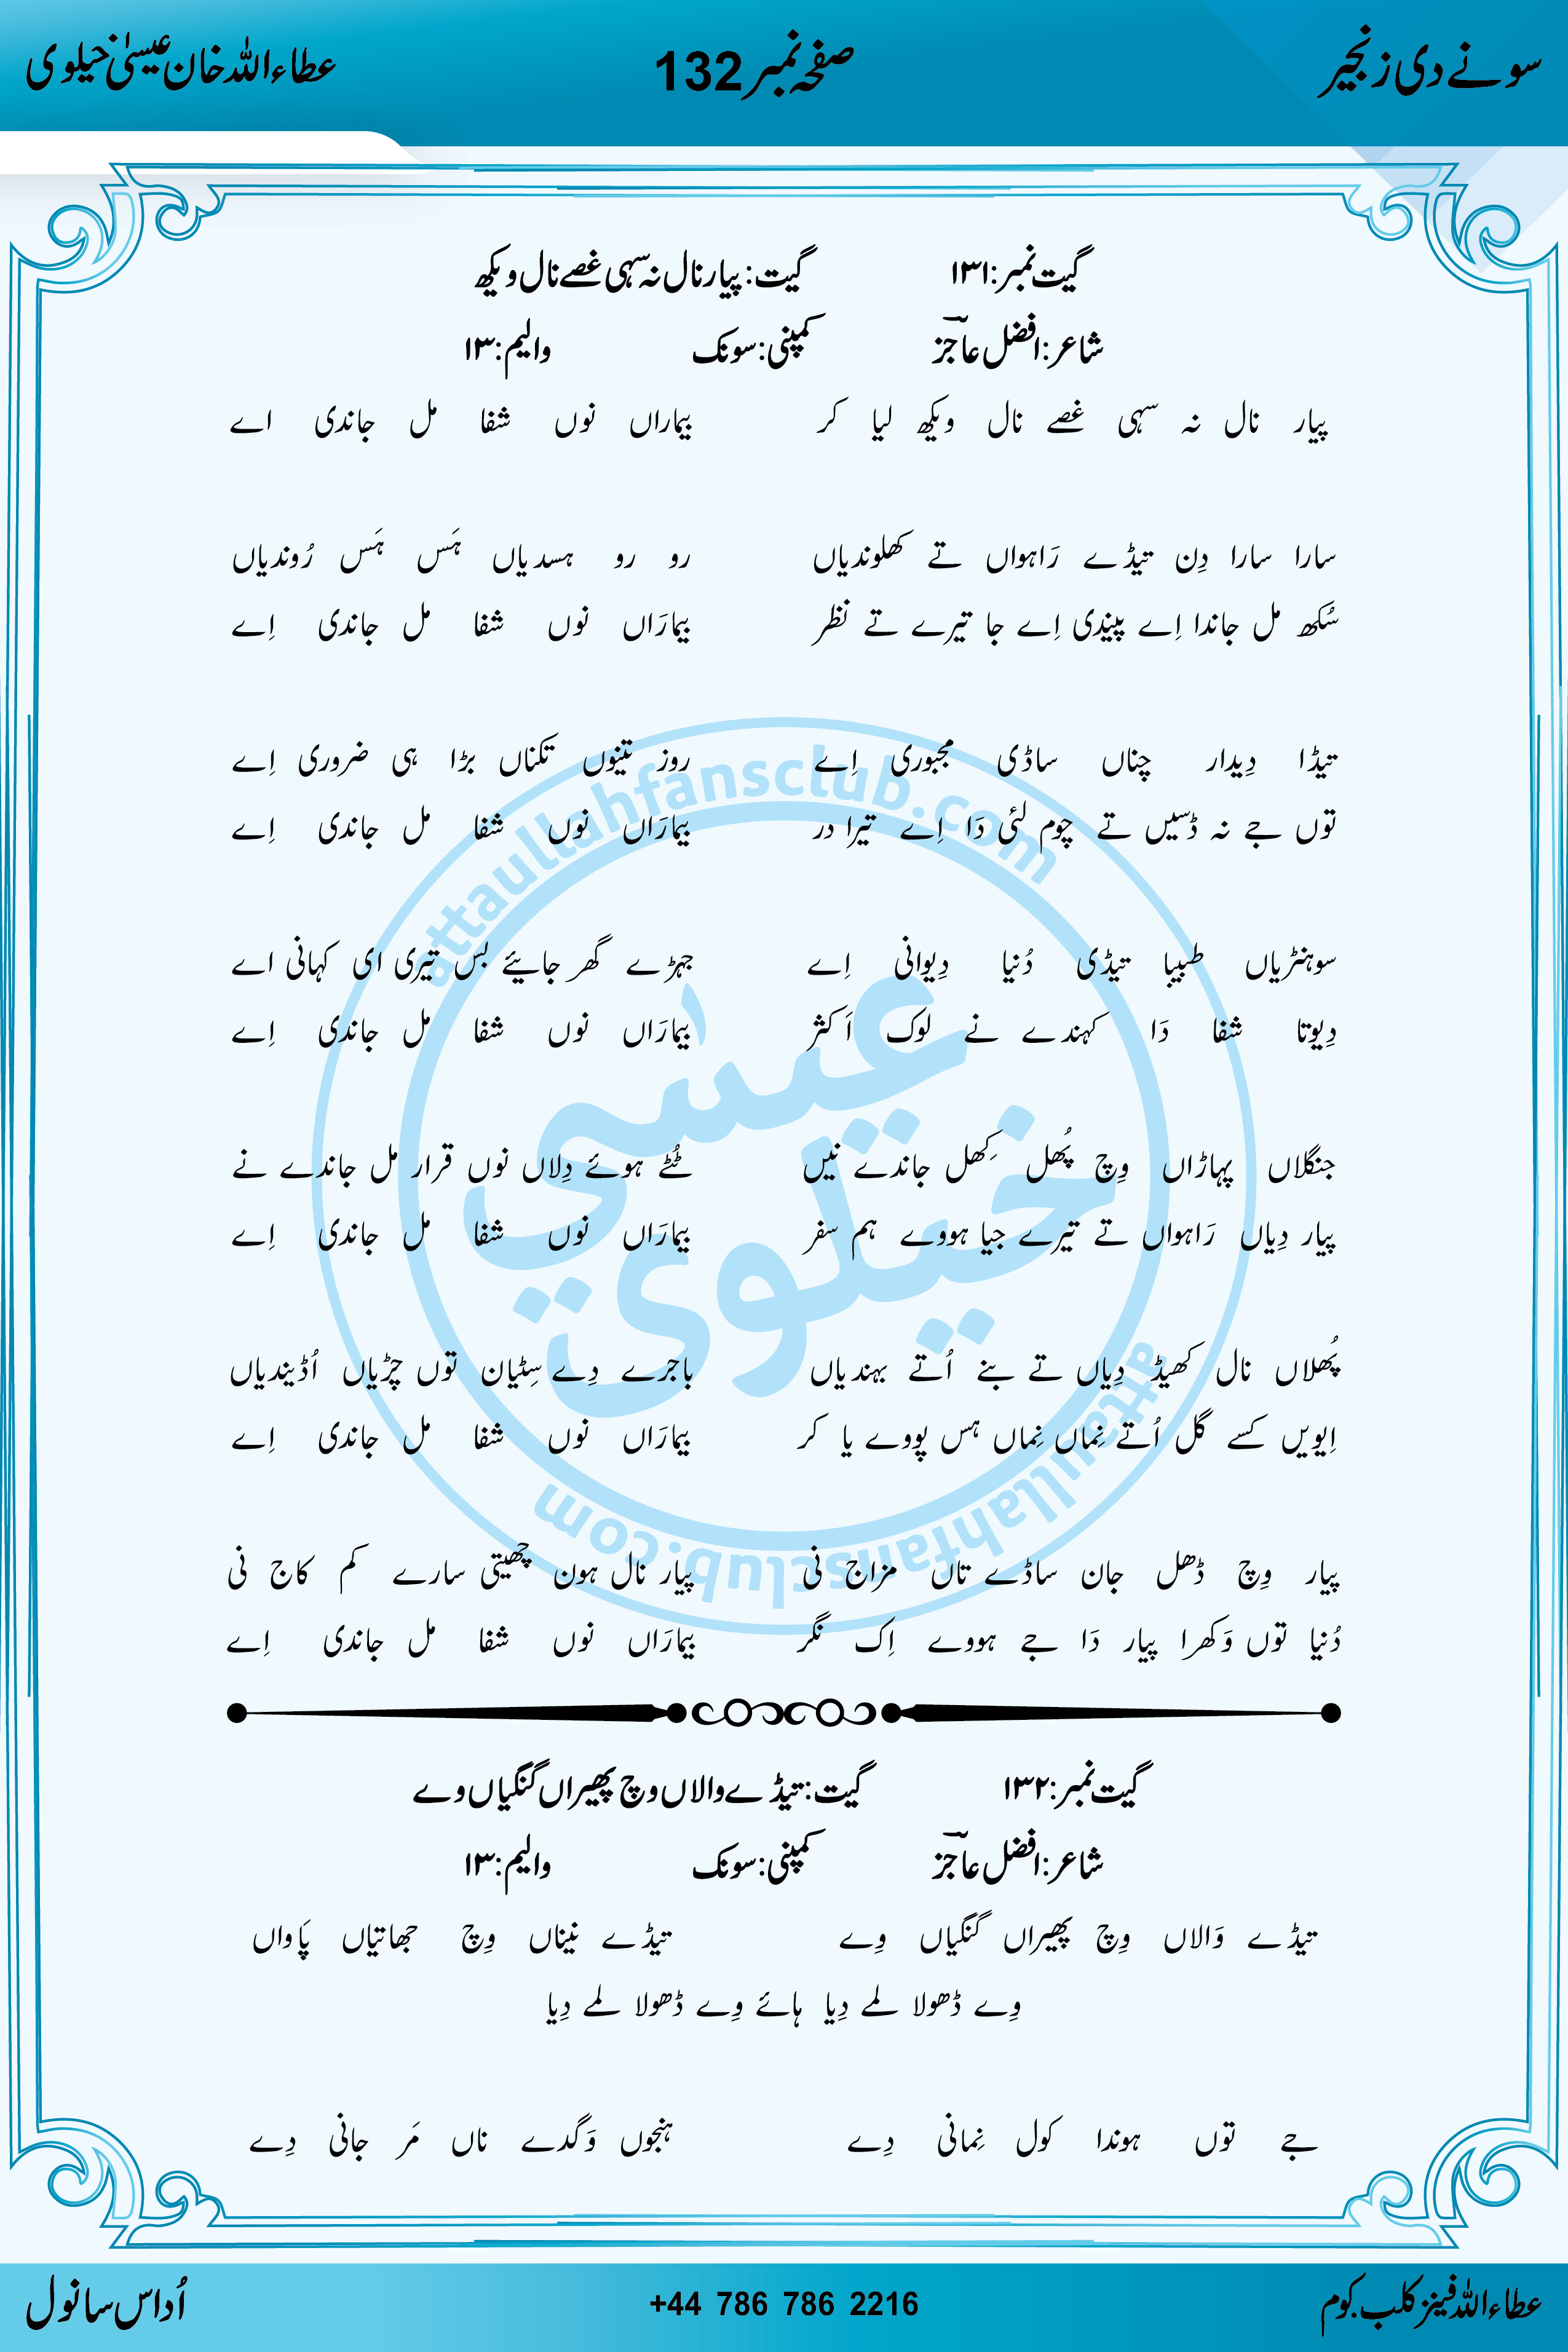 سونے دی زنجیر صفحہ نمبر 132 عطاء اللہ خان عیسیٰ خیلوی
گیت نمبر: ۱۳۱ گیت: پیار نال نہ سہی غصے نال ویکھ
شاعر: افضل عاجزؔ کمپنی: سونک والیم: ۱۳
پیار نال نہ سہی غصے نال ویکھ لیا کر بیماراں نوں شفا مل جاندی اے
سارا سارا دِن تیڈے رَاہواں تے کھلوندیاں رو رو ہسدیاں ہَس ہَس رُوندیاں
سُکھ مل جاندا اِے پیندی اِے جا تیرے تے نظر بیمارَاں نوں شفا مل جاندی اِے
تیڈا دِیدار چناں ساڈی مجبوری اِے روز تینوں تکناں بڑا ہی ضروری اِے
توں جے نہ ڈسیں تے چوم لئی دَا اِے تیرا در بیمارَاں نوں شفا مل جاندی اِے
سوہنڑیاں طبیبا تیڈی دُنیا دِیوانی اِے جہڑے گھر جایئے بس تیری ای کہانی اے
دِیوتا شفا دَا کہندے نے لوک اَکثر بیمارَاں نوں شفا مل جاندی اِے
جنگلاں پہاڑاں وِچ پُھل کِھل جاندے نیں ٹُٹے ہوئے دِلاں نوں قرار مل جاندے نے
پیار دِیاں رَاہواں تے تیرے جیا ہووے ہم سفر بیمارَاں نوں شفا مل جاندی اِے
پُھلاں نال کھیڈ دِیاں تے بنے اُتے بہندیاں باجرے دِے سِٹیان توں چڑیاں اُڈیندیاں
اِیویں کسے گل اُتے نِماں نِماں ہس پووے یا کر بیمارَاں نوں شفا مل جاندی اِے
پیار وِچ ڈھل جان ساڈے تاں مزاج نی پیار نال ہون چھیتی سارے کم کاج نی
دُنیا توں وَکھرا پیار دَا جے ہووے اِک نگر بیمارَاں نوں شفا مل جاندی اِے
گیت نمبر: ۱۳۲ گیت: تیڈے والاں وچ پھیراں گنگیاں وے
شاعر: افضل عاجزؔ کمپنی: سونک والیم: ۱۳
تیڈے وَالاں وِچ پھیراں گنگیاں وِے تیڈے نیناں وِچ جھاتیاں پَاواں
وِے ڈھولا لمے دِیا ہائے وِے ڈھولا لمے دِیا
جے توں ہوندا کول نِمانی دِے ہنجوں وَگدے ناں مَر جانی دِے
عطاء اللہ فینز کلب.کوم +44 786 786 2216 اُداس سانول
attaullahfansclub.com
عیسیٰ
خیلوی
attaullahfansclub.com